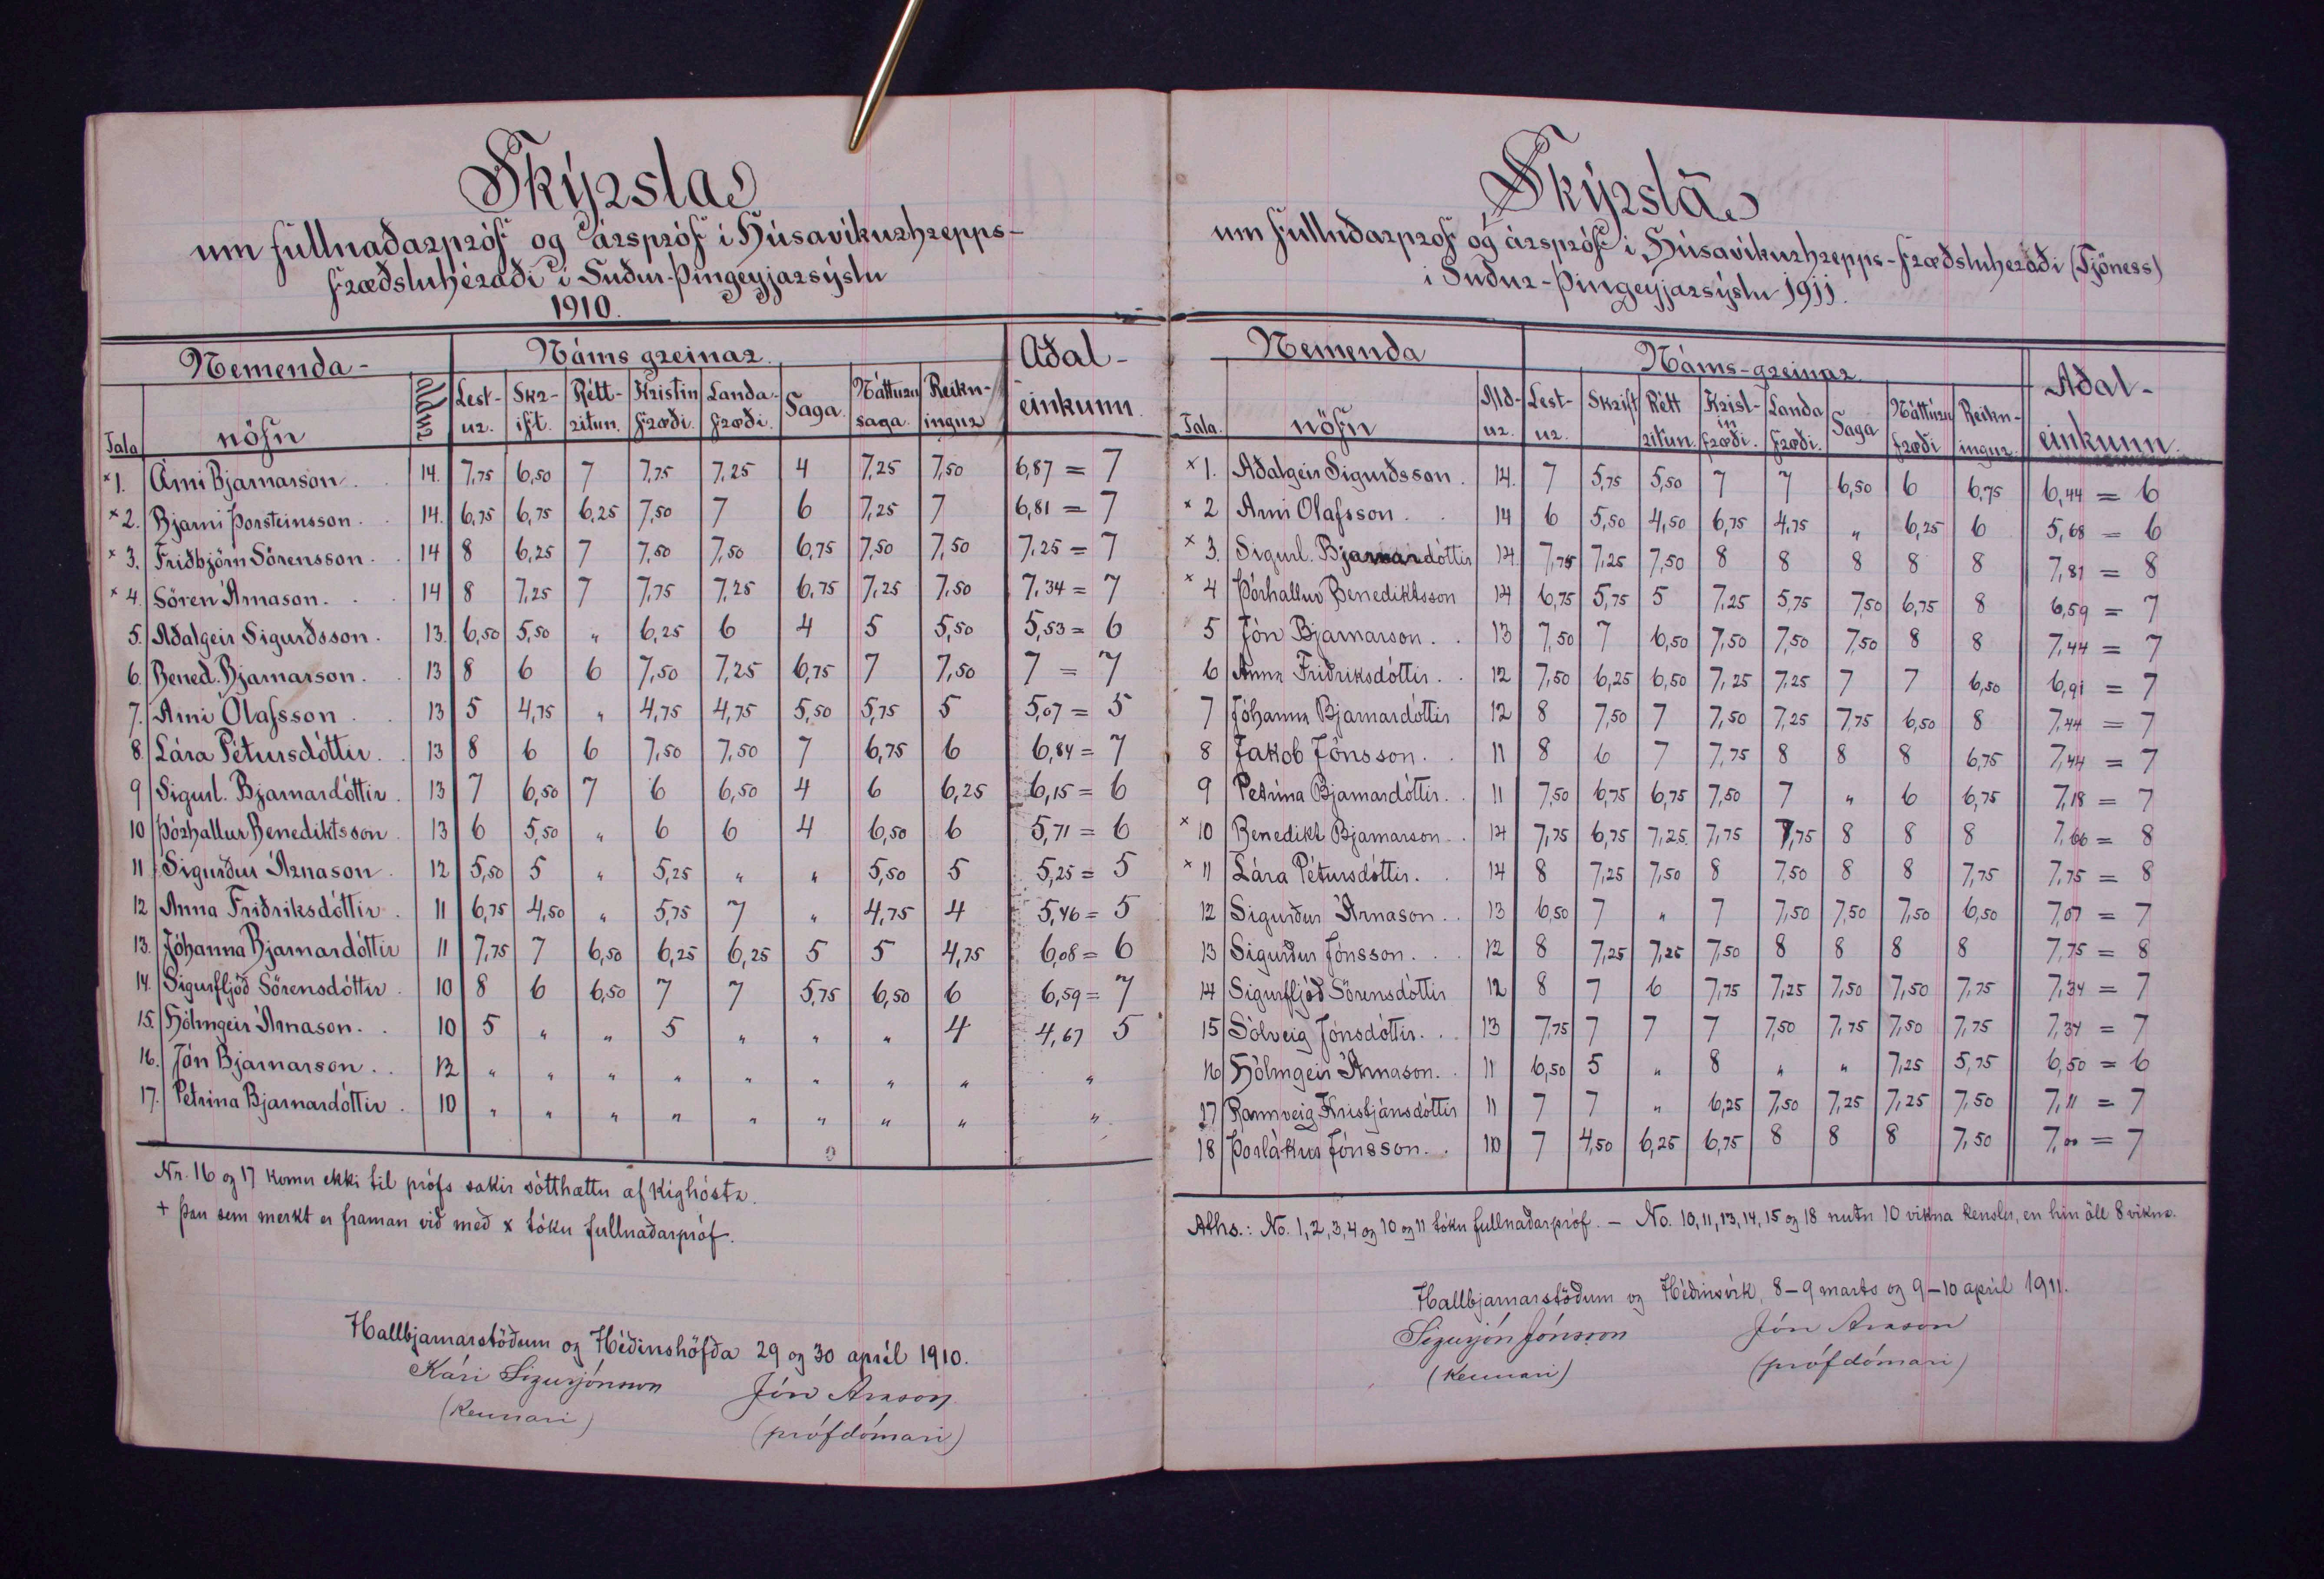 Skýrsla
um fullnaðarpróf og ársprof i Húsavíkurhrepps-
fræðsluhéraði i Suður-Þingeyjarsýslu
1910.
Nemenda- Náms greinar. Aðal-
Tala nöfn aldur Lest- Skr- Rétt- Kristin Landa- Saga. Náttúru Reikn- einkunn.
ur. ift. ritun. fræði. fræði. saga. ingur
×1. Árni Bjarnarson. 14. 7,75 6,50 7 7,75 7,25 4 7,25 7,50 6,87 = 7
×2. Bjarni Þorsteinsson. 14. 6,75 6,75 6,25 7,50 7 6 7,25 7 6,81 = 7
×3. Friðbjörn Sörensson. 14 8 6,25 7 7,50 7,50 6,75 7,50 7,50 7,25 = 7
×4. Sören Árnason. 14 8 7,25 7 7,75 7,25 6,75 7,25 7,50 7,34 = 7
5. Aðalgeir Sigurðsson. 13. 6,50 5,50 „ 6,25 6 4 5 5,50 5,53 = 6
6. Bened. Bjarnarson. 13 8 6 6 7,50 7,25 6,75 7 7,50 7 = 7
7. Árni Ólafsson 13 5 4,75 „ 4,75 4,75 5,50 5,75 5 5,07 = 5
8. Lára Pétursdóttir. 13 8 6 6 7,50 7,50 7 6,75 6 6,84 = 7
9 Sigurl. Bjarnardóttir. 13 7 6,50 7 6 6,50 4 6 6,25 6,15 = 6
10 Þórhallur Benediktsson. 13 6 5,50 „ 6 6 4 6,50 6 5,71 = 6
11 Sigurður Árnason. 12 5,50 5 „ 5,25 „ „ 5,50 5 5,25 = 5
12 Anna Friðriksdóttir. 11 6,75 4,50 „ 5,75 7 „ 4,75 4 5,46 = 5
13. Jóhanna Bjarnardóttir 11 7,75 7 6,50 6,25 6,25 5 5 4,75 6,08 = 6
14. Sigurfljóð Sörensdóttir. 10 8 6 6,50 7 7 5,75 6,50 6 6,59 = 7
15. Hólmgeir Árnason. 10 5 „ „ 5 „ „ „ 4 4,67 5
16. Jón Bjarnarson. 12 „ „ „ „ „ „ „ „ „
17. Petrína Bjarnardóttir. 10 „ „ „ „ „ „ „ „ „
Nr. 16 og 17 komu ekki til prófs sakir sótthættu af kighósta.
+ Þau sem merkt er framan við með x tóku fullnaðarpróf.
Hallbjarnarstöðum og Héðinshöfða 29 og 30 apríl 1910.
Kári Sigurjónsson Jón Arason
(kennari) (prófdómari)
Skýrsla
um fullnðarprof og árspróf i Húsavíkurhrepps-fræðsluheraði (Tjörness)
i Suður-Þingeyjarsýslu 1911.
Nemenda Náms-greinar. Aðal-
Tala. nöfn Ald- Lest- Skrift Rétt Krist- Landa Saga Náttúru Reikn- einkunn.
ur. ur. ritun. in fræði. fræði. fræði ingur.
×1. Aðalgeir Sigurðsson. 14. 7 5,75 5,50 7 7 6,50 6 6,75 6,44 = 6
×2 Árni Ólafsson. 14 6 5,50 4,50 6,75 4,75 „ 6,25 6 5,68 = 6
×3. Sigurl. Bjarnardóttir 14. 7,75 7,25 7,50 8 8 8 8 8 7,81 = 8
×4 Þórhallur Benediktsson 14 6,75 5,75 5 7,25 5,75 7,50 6,75 8 6,59 = 7
5 Jón Bjarnarson. 13 7,50 7 6,50 7,50 7,50 7,50 8 8 7,44 = 7
6 Anna Friðriksdóttir. 12 7,50 6,25 6,50 7,25 7,25 7 7 6,50 6,91 = 7
7 Jóhanna Bjarnardóttir 12 8 7,50 7 7,50 7,25 7,75 6,50 8 7,44 = 7
8 Jakob Jónsson. 11 8 6 7 7,75 8 8 8 6,75 7,44 = 7
9 Petrína Bjarnardóttir. 11 7,50 6,75 6,75 7,50 7 „ 6 6,75 7,18 = 7
×10 Benedikt Bjarnarson. 14 7,75 6,75 7,25 7,75 7,75 8 8 8 7,66 = 8
×11 Lára Pétursdóttir. 14 8 7,25 7,50 8 7,50 8 8 7,75 7,75 = 8
12 Sigurður Árnason. 13 6,50 7 „ 7 7,50 7,50 7,50 6,50 7,07 = 7
13 Sigurður Jónsson. 12 8 7,25 7,25 7,50 8 8 8 8 7,75 = 8
14 Sigurfljóð Sörensdóttir 12 8 7 6 7,75 7,25 7,50 7,50 7,75 7,34 = 7
15 Sólveig Jónsdóttir. 13 7,75 7 7 7 7,50 7,75 7,50 7,75 7,34 = 7
16 Hólmgeir Árnason. 11 6,50 5 „ 8 „ „ 7,25 5,75 6,50 = 6
17 Rannveig Kristjánsdóttir 11 7 7 „ 6,25 7,50 7,25 7,25 7,50 7,11 = 7
18 Þorlákur Jónsson. 10 7 4,50 6,25 6,75 8 8 8 7,50 7,00 = 7
Aths.: No. 1, 2, 3, 4 og 10 og 11 tóku fullnaðarpróf. – No. 10, 11, 13, 14, 15 og 18 nutu 10 vikna kenslu, en hin öll 8 vikna.
Hallbjarnarstöðum og Héðinsvík, 8–9 marts og 9–10 apríl 1911.
Sigurjón Jónsson Jón Arason
(kennari) (prófdómari)